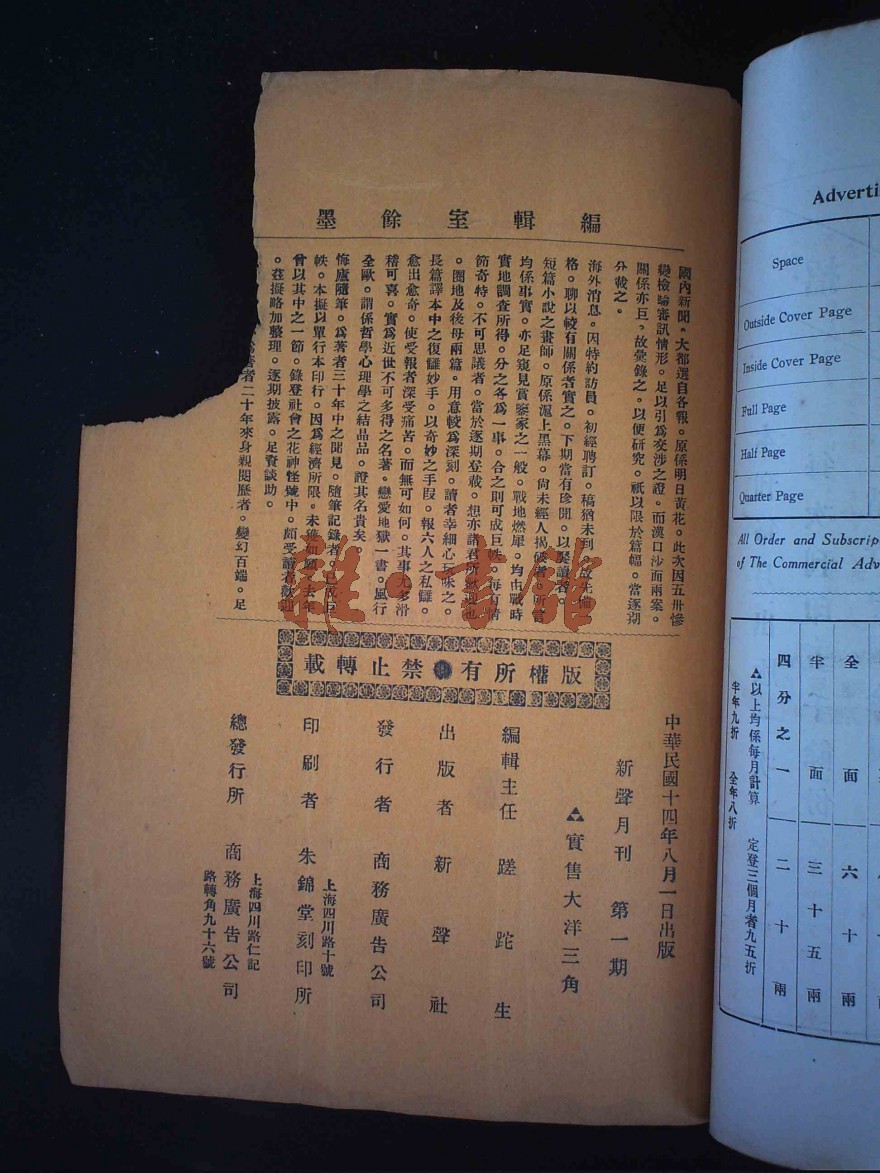 編輯室餘墨
國內新聞。大都選自各報。原係明日黃花。此次因五卅慘
變檢論審訊情形。足以引爲交涉之證。而漢口沙面兩案。
關係亦巨。故彙錄之。以便研究。祇以限於篇幅。當逐期
分載之。
海外消息。因特約訪員。初經聘訂。稿猶未到。故先備
格。聊以較有關係者實之。下期當有珍聞。以饗讀者。
短篇小說之畫師。原係滬上黑幕。尙未經人揭破者。所言
均係事實。亦足窺見賞鑒家之一般。戰地燃犀。均由戰時
實地調查所得。分之各爲一事。合之則可成巨帙。每有情
節奇特。不可思議者。當於逐期登載。想亦諸君所歡迎也
。圈地及後母兩篇。用意較爲深刻。讀者幸細心玩味之。
長篇譯本中之復讎妙手。以奇妙之手叚。報六人之私讎。
愈出愈奇。使受報者深受痛苦。而無可如何。其事尤多滑
稽可喜。實爲近世不可多得之名著。戀愛地獄一書。風行
全歐。謂係哲學心理學之結晶品。證其名貴矣。
悔廬隨筆。爲著者三十年中之聞見。隨筆記錄者。已成巨
帙。本擬以單行本印行。因爲經濟所限。未獲如願。去年
曾以其中之一節。錄登社會之花神怪號中。頗受讀者歡迎
。茲擬略加整理。逐期披露。足資談助。
著者二十年來身親閱歷者。變幻百端。足
版權所有 禁止轉載
中華民國十四年八月一日出版
新聲月刊 第一期
實售大洋三角
編輯主任 蹉跎生
出版者 新聲社
發行者 商務廣告公司
上海四川路十號
印刷者 朱錦堂刻印所
上海四川路仁記
總發行所 商務廣告公司
路轉角九十六號
Adverti
Space
Outside Cover Page
Inside Cover Page
Full Page
Half Page
Quarter Page
All Order and Subscrip
of The Commercial Adv
全面 六十兩
半面 三十五兩
四分之一 二十兩
以上均係每月計算 定登三個月者九五折
半年九折 全年八折
雜·書館